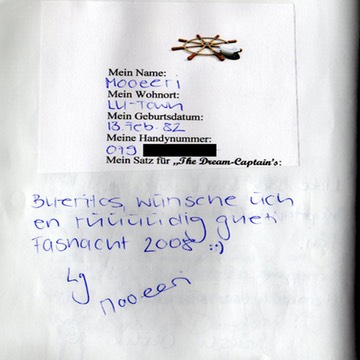 Mein Name:
Mooeeri
Mein Wohnort:
LU-Town
Mein Geburtsdatum:
13. Feb. 82
Meine Handynummer:
079
Mein Satz für „The Dream-Captain's:
wünsche üch
en rüüüüdig gueti
Fasnacht 2008 :)
Lg
Mooeeri